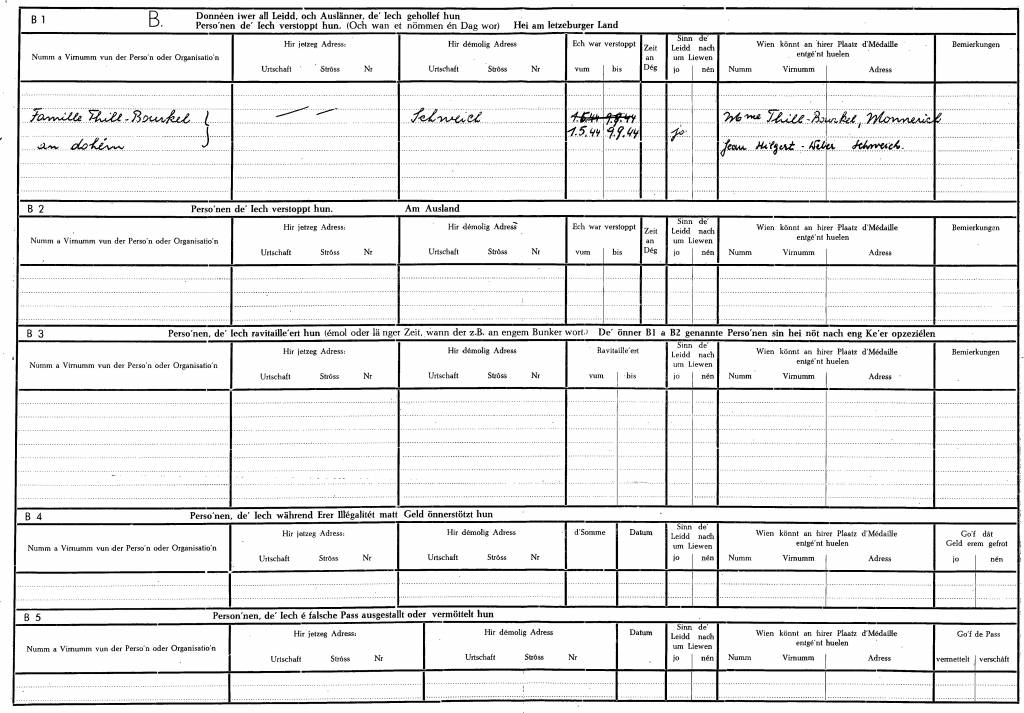 B 1 B. Donnéen iwer all Leidd, och Auslänner, de' Iech gehollef hun
Perso'nen de' Iech verstoppt hun. (Och wan et nömmen én Dag wor) Hei am letzeburger Land
Numm a Virnumm vun der Perso'n oder Organisatio'n
Hir jetzeg Adress:
Urtschaft Ströss Nr
Hir démolig Adress
Urtschaft Ströss Nr
Ech war verstoppt
vum bis
Zeit
an
Dég
Sinn de'
Leidd nach
um Liewen
jo nén
Wien könnt an hirer Plaatz d'Médaille
entgé'nt huelen
Numm Virnumm Adress
Bemierkungen
Famille Thill-Bourkel
an dohém
Schweich
1.5.44 9.9.44
1.5.44 9.9.44
jo
Mme Thill-Bourkel, Monnerich
Jean Hilgert-Weber Schweich.
B 2 Perso'nen de' Iech verstoppt hun. Am Ausland
Numm a Virnumm vun der Perso'n oder Organisatio'n
Hir jetzeg Adress:
Urtschaft Ströss Nr
Hir démolig Adress
Urtschaft Ströss Nr
Ech war verstoppt
vum bis
Zeit
an
Dég
Sinn de'
Leidd nach
um Liewen
jo nén
Wien könnt an hirer Plaatz d'Médaille
entgé'nt huelen
Numm Virnumm Adress
Bemierkungen
B 3 Perso'nen, de' Iech ravitaille'ert hun (émol oder länger Zeit, wann der z.B. an engem Bunker wort.) De' önner B1 a B2 genannte Perso'nen sin hei nöt nach eng Ke'er opzeziélen
Numm a Virnumm vun der Perso'n oder Organisatio'n
Hir jetzeg Adress:
Urtschaft Ströss Nr
Hir démolig Adress
Urtschaft Ströss Nr
Ravitaille'ert
vum bis
Sinn de'
Leidd nach
um Liewen
jo nén
Wien könnt an hirer Plaatz d'Médaille
entgé'nt huelen
Numm Virnumm Adress
Bemierkungen
B 4 Perso'nen, de' Iech während Erer Illégalitét matt Geld önnerstötzt hun
Numm a Virnumm vun der Perso'n oder Organisatio'n
Hir jetzeg Adress:
Urtschaft Ströss Nr
Hir démolig Adress
Urtschaft Ströss Nr
d'Somme
Datum
Sinn de'
Leidd nach
um Liewen
jo nén
Wien könnt an hirer Plaatz d'Médaille
entgé'nt huelen
Numm Virnumm Adress
Go'f dât
Geld erem gefrot
jo nén
B 5 Person'nen, de' Iech é falsche Pass ausgestallt oder vermöttelt hun
Numm a Virnumm vun der Perso'n oder Organisatio'n
Hir jetzeg Adress:
Urtschaft Ströss Nr
Hir démolig Adress
Urtschaft Ströss Nr
Datum
Sinn de'
Leidd nach
um Liewen
jo nén
Wien könnt an hirer Plaatz d'Médaille
entgé'nt huelen
Numm Virnumm Adress
Go'f de Pass
vermettelt verschâft